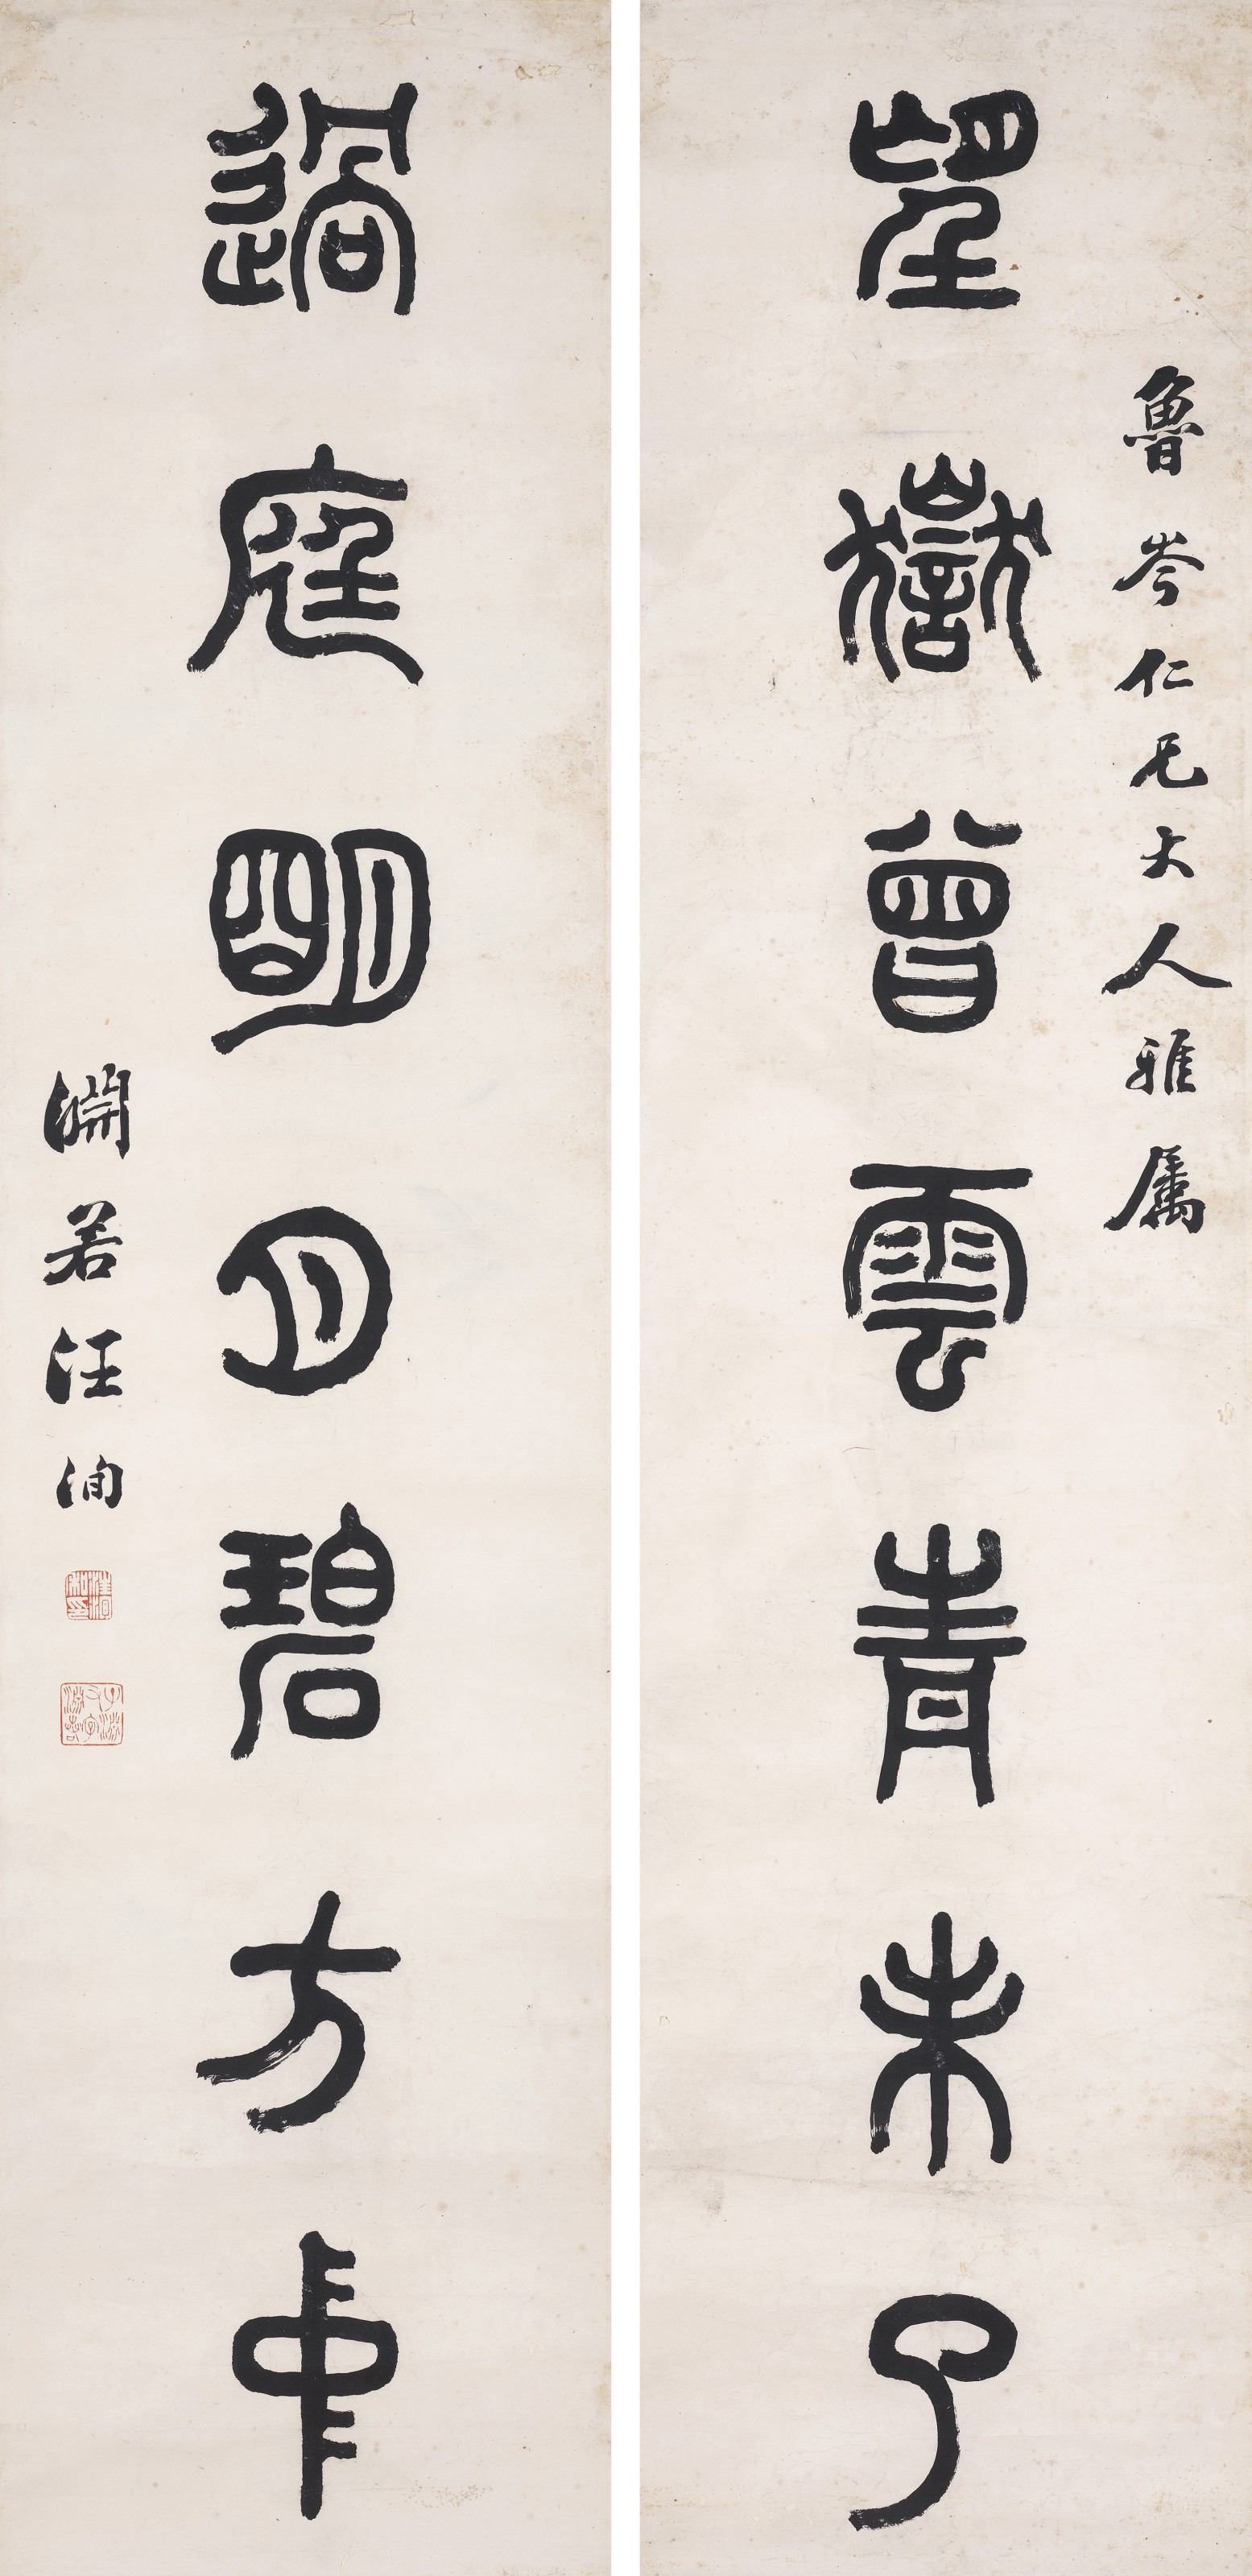 魯岑仁兄大人雅屬
望嶽曾雲青未了
過庭明月碧方中
淵若汪洵